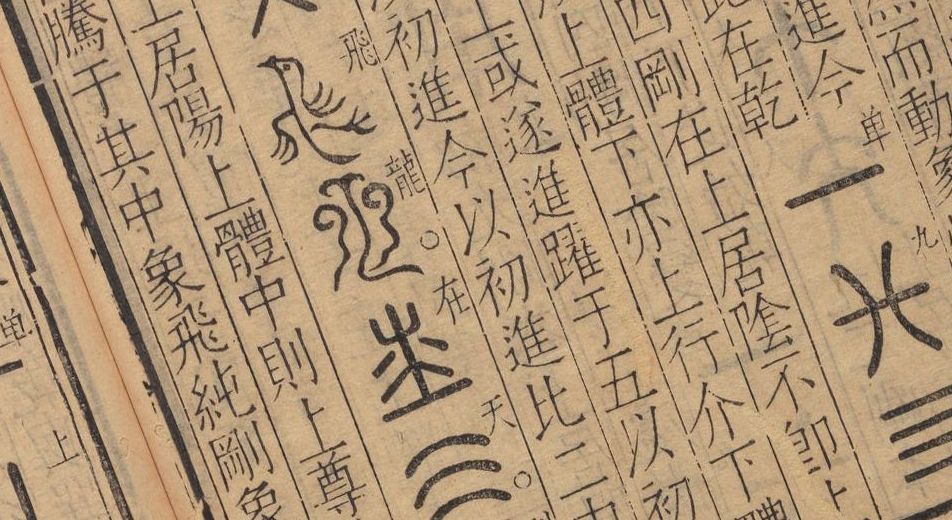 而動象
進今
単
九
此在乾
四剛在上居陰不卽上
上體下亦上行介下體
上或遂進躍于五以初
初進今以初進比二中
飛龍。在天。
上居陽上體中則上尊
騰于其中象飛純剛象
単
上